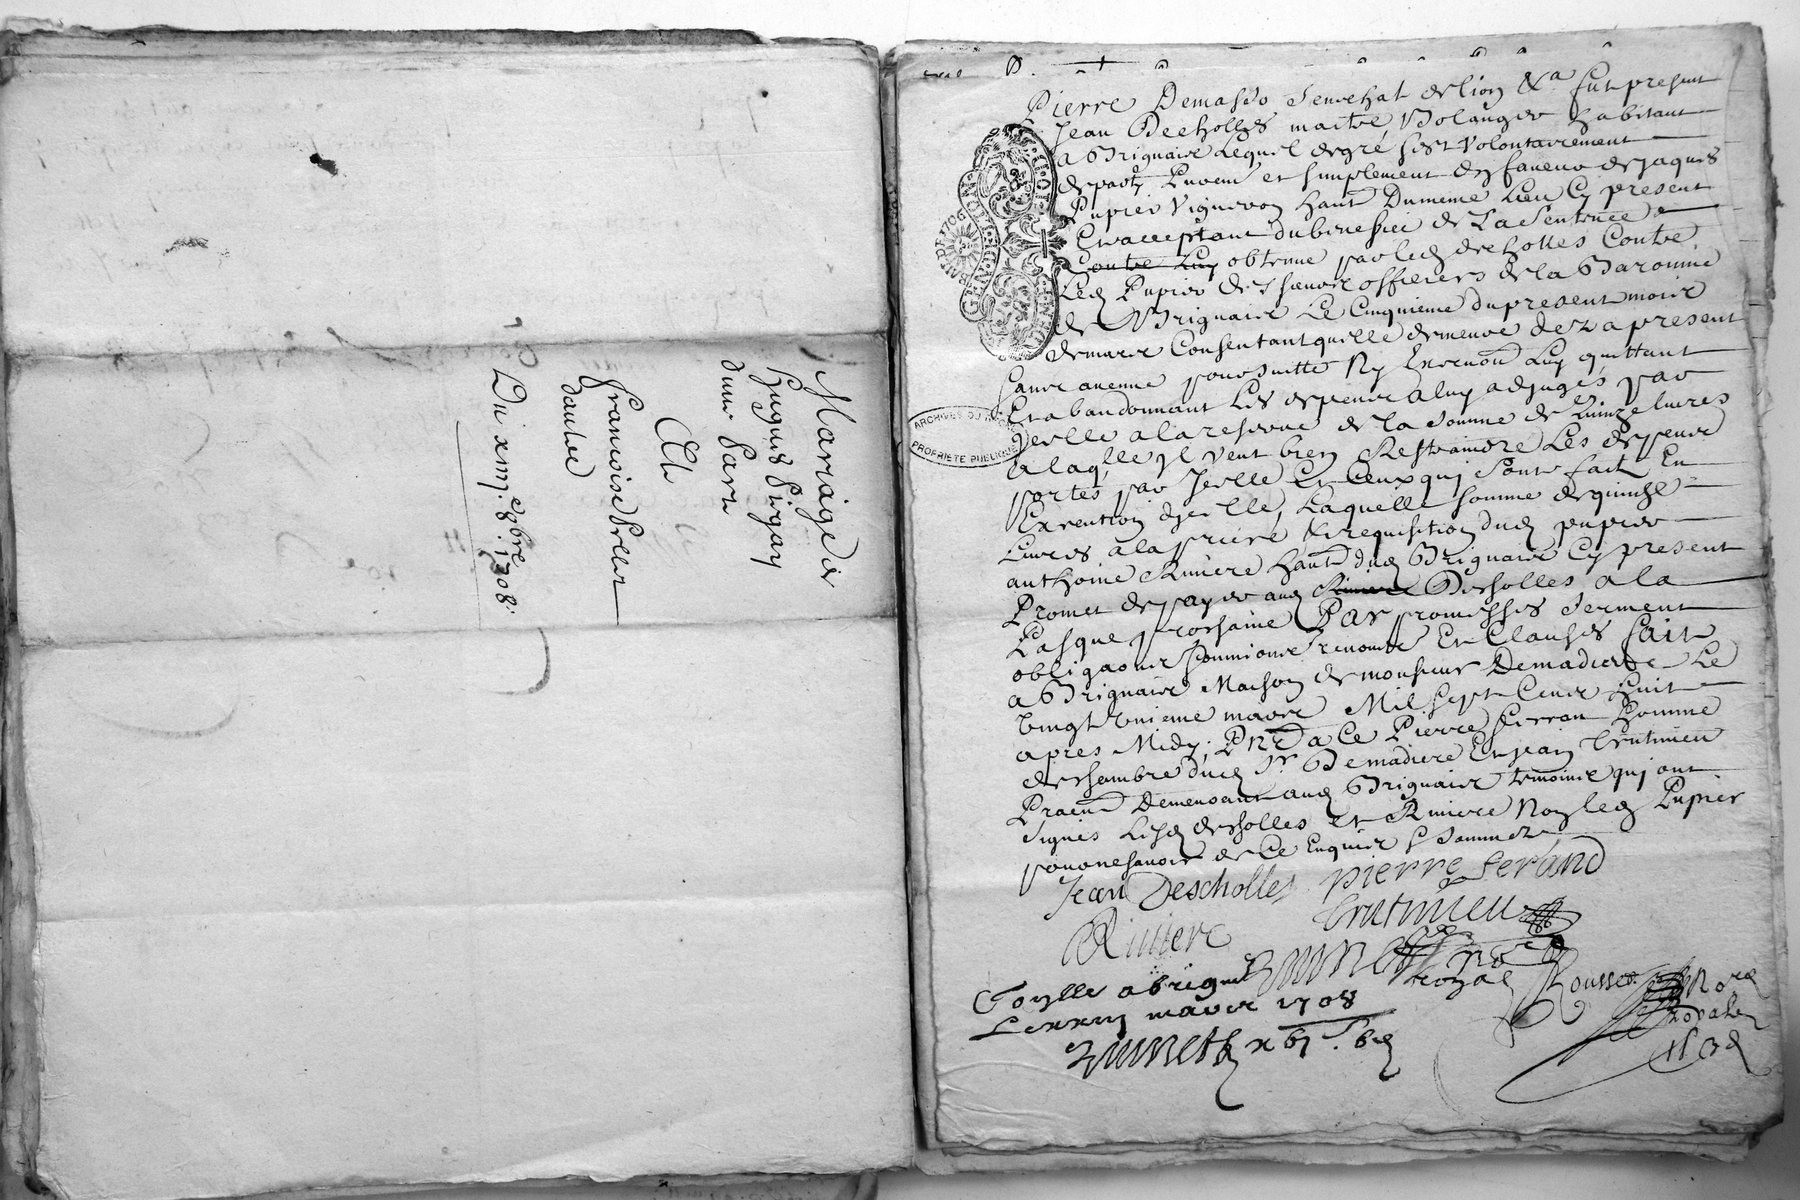 Mariage de
hugues Pirjay
dune Part
Et
francoise Peller
dautre
Du xiiij. 8. 9bre 1708.
Pierre Demasso Senechal de lion &a. fut present
Jean Decholles maitre Bolanger habitant
a Brignaix Lequel de gré sest volontairement
departy purem et simplement en faveur de Jaques
Pupier Vigneron habt Du meme Lieu Cy present
Et acceptant du benefice de La Sentence
Contre Luy obtenue par led decholles Contre
Led Pupier des sieurs officiers de la Baronnie
de Brignaix Le Cinquieme du present mois
de mars Consentant quelle demeure dez a present
sans aucune poursuitte Ny Execuôn Luy quittant
Et abandonnant Les depens a luy adjugés par
Jcelle a la reserve de la Somme de Quinze livres
a laqlle Jl veut bien Restraindre Les depens
portes par Jcelle Et Ceux qui Sont faits En
Execution djcelle, Laquelle Somme de quinze
Livres a la priere & requisition dud pupier
anthoine Riviere habt dud Brignaix Cy present
Promet de payer aud Riviere Descholles a la
Pasque prochaine Par promesses Serment
obligaons soumions renonce Et Clauses fait
a Brignaix Maison de monsieur Demadiere Le
Vingt unieme mars Mil Sept Cens huit
apres Midy; Pnt a Ce Pierre ferran homme
de chambre dud Sr. Demadiere Et Jean Crutinieu
Pratn Demeurant aud Brignaix temoins qui ont
Signés Lesd descholles et Riviere Non led Pupier
pour ne savoir de Ce Enquis & Sommez
Jean Descholles pierre ferand
Riviere Crutinieu
nore royal
Conlle a brignaix
Le xxvij mars 1708